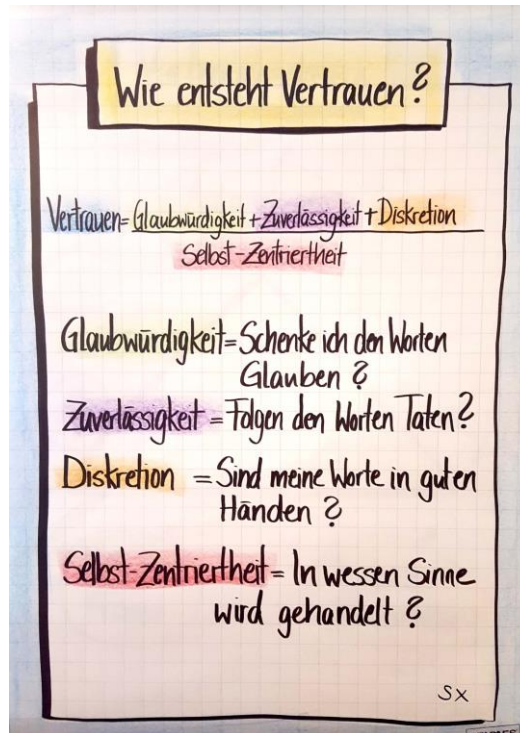 Wie entsteht Vertrauen?
Vertrauen= Glaubwürdigkeit + Zuverlässigkeit + Diskretion
Selbst-Zentriertheit
Glaubwürdigkeit= Schenke ich den Worten
Glauben?
Zuverlässigkeit = Folgen den Worten Taten?
Diskretion = Sind meine Worte in guten
Händen?
Selbst-Zentriertheit= In wessen Sinne
wird gehandelt?
SX